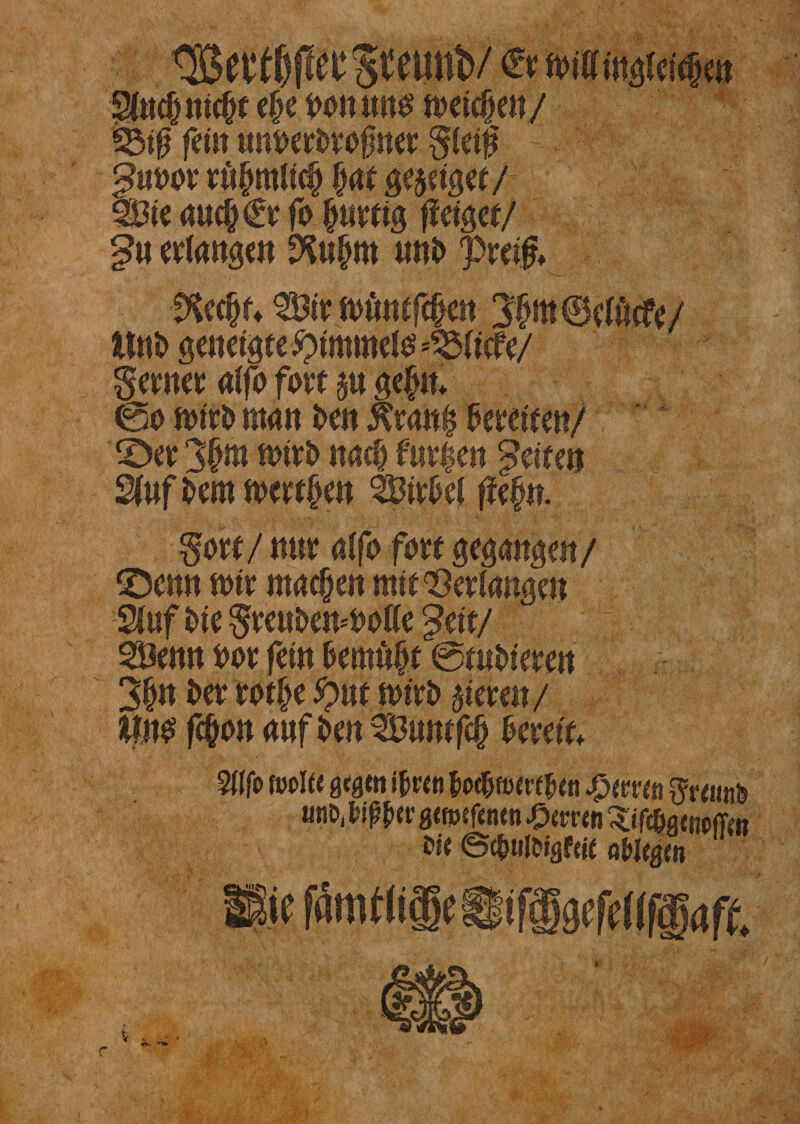 Werthster Freund/ Er will ingleichen
Auch nicht ehe von uns weichen/
Biß sein unverdroßner Fleiß
Zuvor rühmlich hat gezeiget/
Wie auch Er so hurtig steiget/
Zu erlangen Ruhm und Preiß.
Recht. Wir wüntschen Ihm Gelücke/
Und geneigte Himmels-Blicke/
Ferner also fort zu gehn.
So wird man den Krantz bereiten/
Der Ihm wird nach kurtzen Zeiten
Auf dem werthen Wirbel stehn.
Fort/ nur also fort gegangen/
Denn wir machen mit Verlangen
Auf die Freuden-volle Zeit/
Wenn vor sein bemüht Studieren
Ihn der rothe Hut wird zieren/
Uns schon auf den Wuntsch bereit.
Also wolte gegen ihren hochwerthen Herren Freund
und, bißher gewesenen Herren Tischgenossen
die Schuldigkeit ablegen
Die sämtliche Tischgesellschafft.